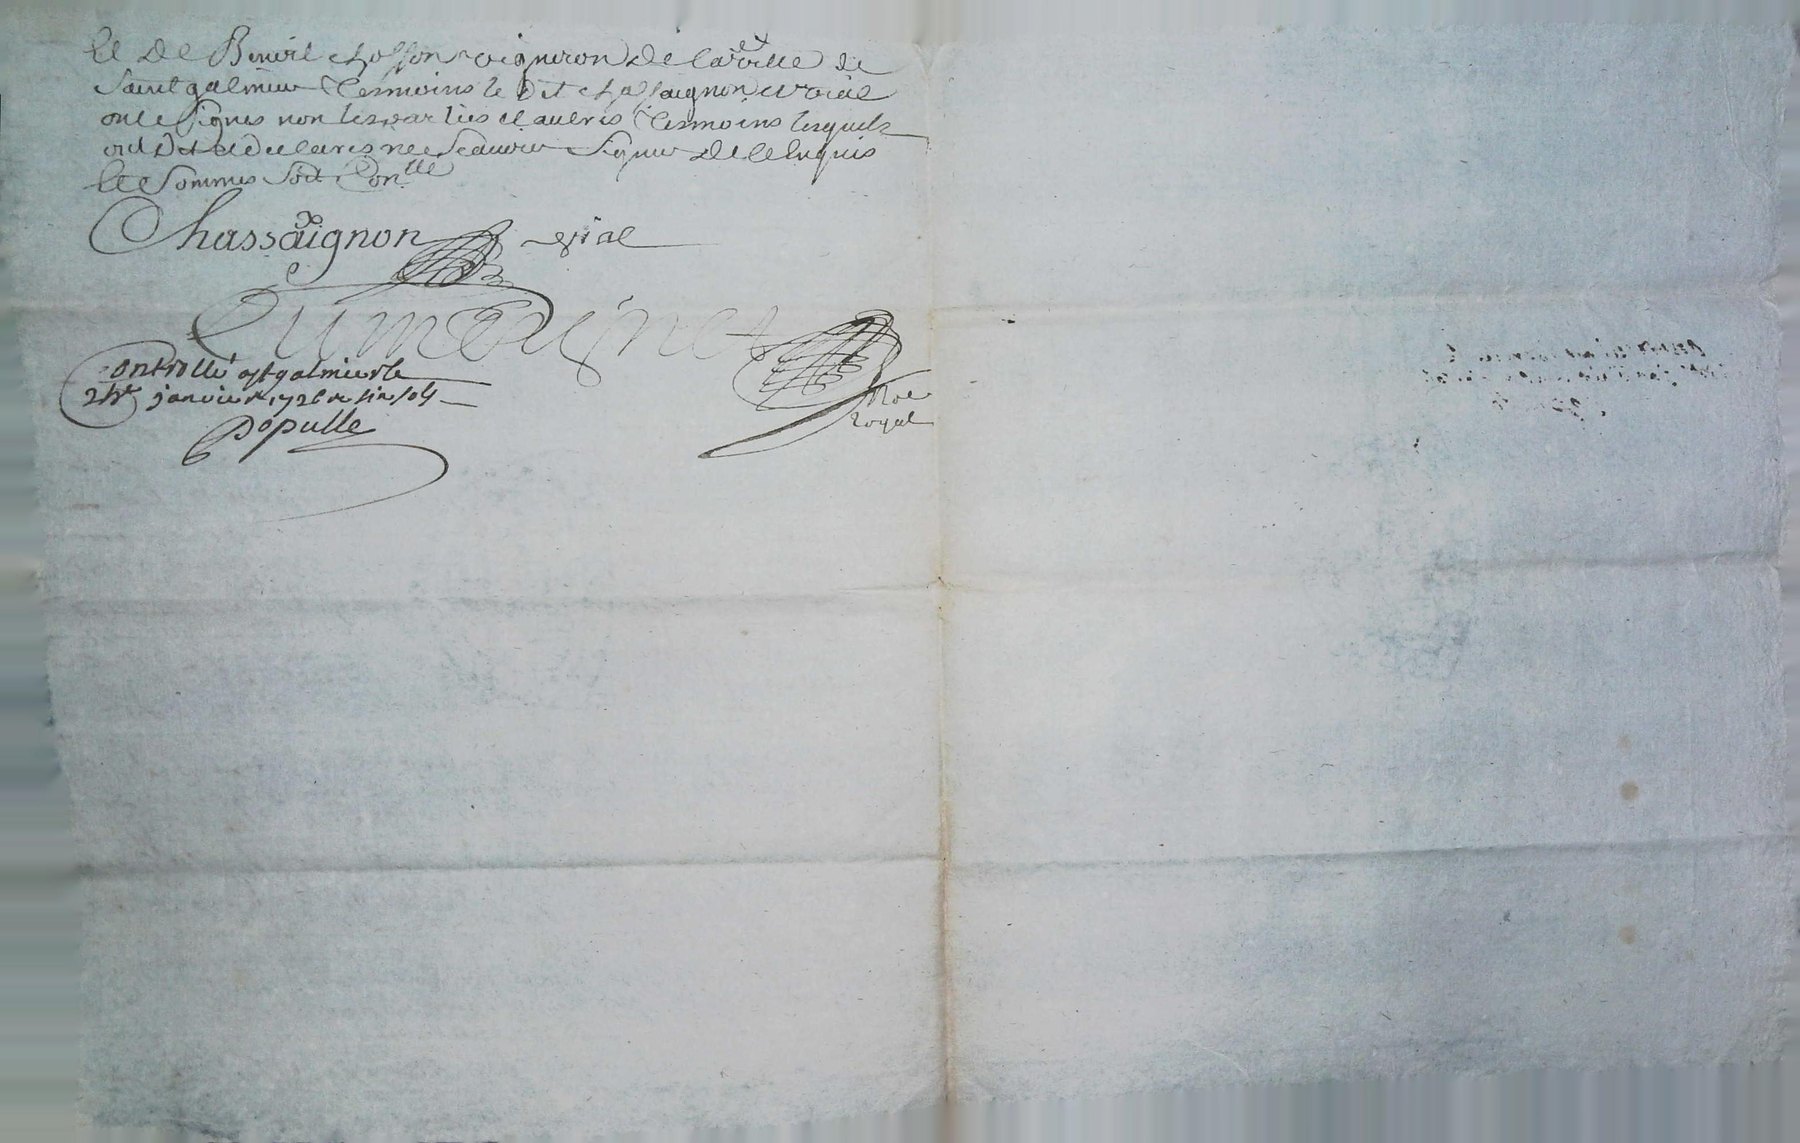 Et de Benoit chosson vigneron de la ville de
Saint galmier tesmoins le dit chassaignon et vial
ont signes non les parties et autres tesmoins lesquels
ont dit et declares ne scavoir signer de ce enquis
et sommes soit Con^lle
Chassaignon vial
controllé a st galmier le
janvier 1726 r six sols
Populle
No^re
Royal